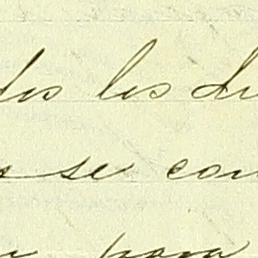 dos los di
s se con
para